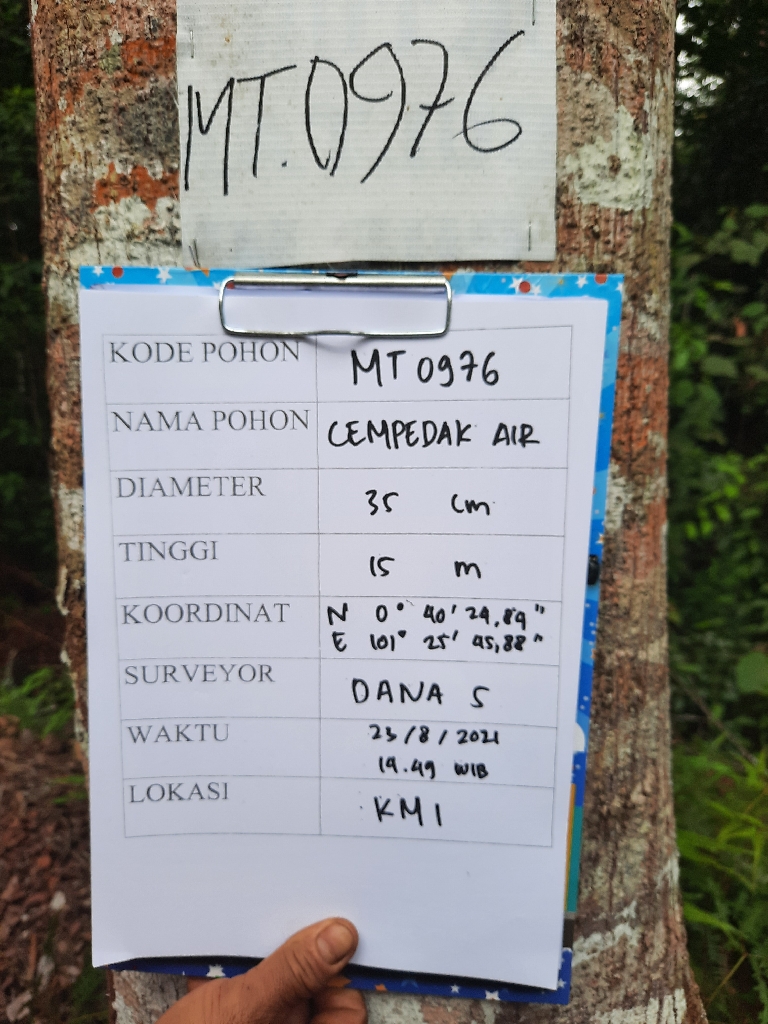 MT.0976
KODE POHON MT 0976
NAMA POHON CEMPEDAK AIR
DIAMETER 35 cm
TINGGI 15 m
KOORDINAT N 0° 40' 24,89"
E 101° 25' 45,88"
SURVEYOR DANA S
WAKTU 23/8/2021
14.49 WIB
LOKASI KM1